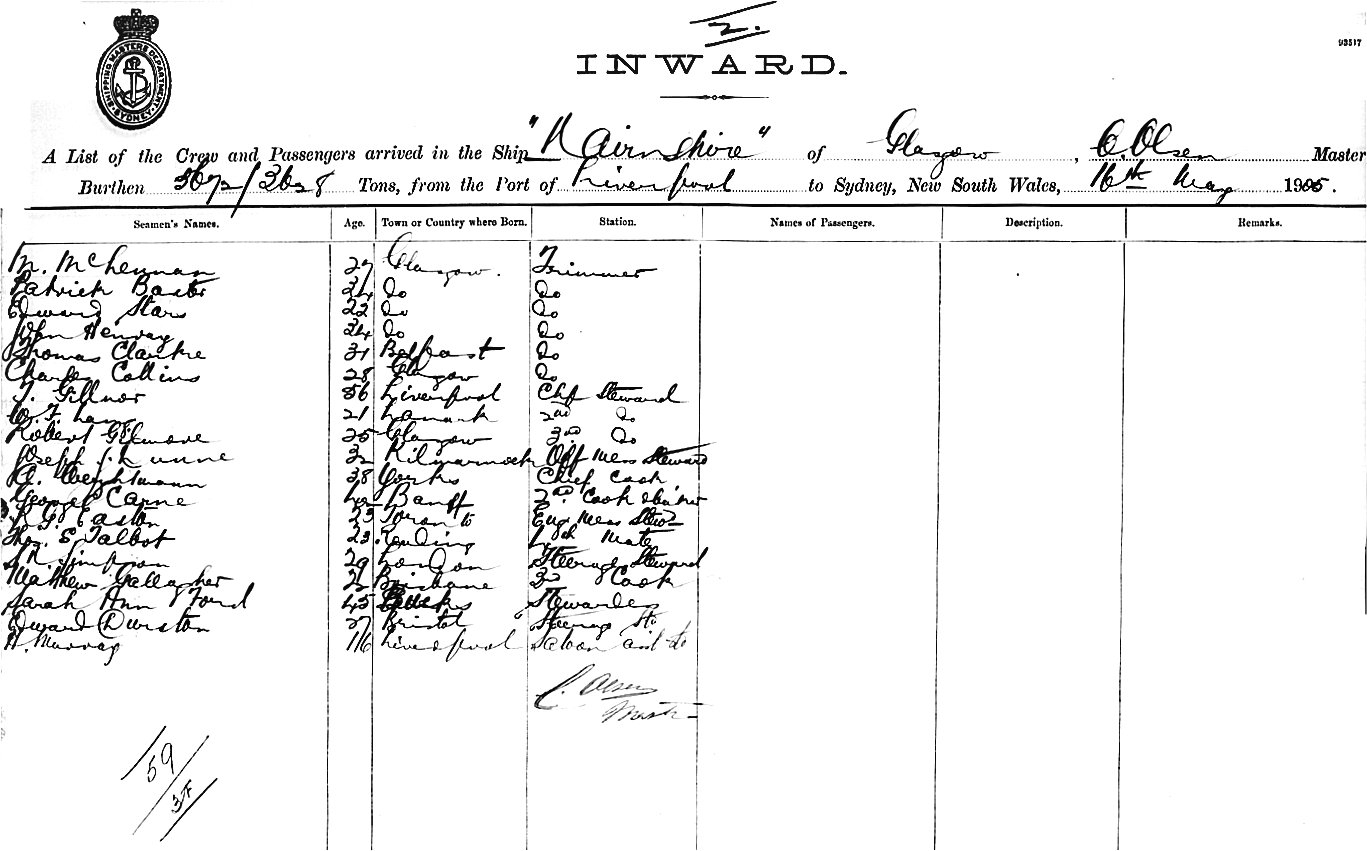 2.
93517
SHIPPING MASTERS DEPARTMENT SYDNEY
INWARD.
A List of the Crew and Passengers arrived in the Ship "Nairnshire" of Glasgow, C. Olsen Master
Burthen 5672/3628 Tons, from the Port of Liverpool to Sydney, New South Wales, 16th May 1905.
Seamen's Names. Age. Town or Country where Born. Station. Names of Passengers. Description. Remarks.
M. McLennan 27 Glasgow. Trimmer
Patrick Baxter 34 Do Do
Edward Stars 22 Do Do
John Henvay 34 Do Do
Thomas Clarke 31 Belfast Do
Charles Collins 28 Glasgow Do
J. Gillmor 56 Liverpool Chf Steward
W. F. Lang 21 Lanark 2nd Do
Robert Gilmore 25 Glasgow 3rd Do
Joseph J. Lunne 32 Kilmarnock Off Mess Steward
A. Weightmann 38 Yorks Chief Cook
George Carne 42 Banff 2nd Cook &
R. G. Easton 23 Toronto Eng Mess Stewd
Thos. S. Talbot 23 Reading 4th Mate
Simpson 29 London Steerage Steward
Matthew Gallagher 22 Brisbane 3rd Cook
Sarah Ann Ford 45 Stewardess
Edward Durston 27 Bristol Steerage Std
H. Murray 16 Liverpool Saloon asst do
C. Olsen
Master
59
37